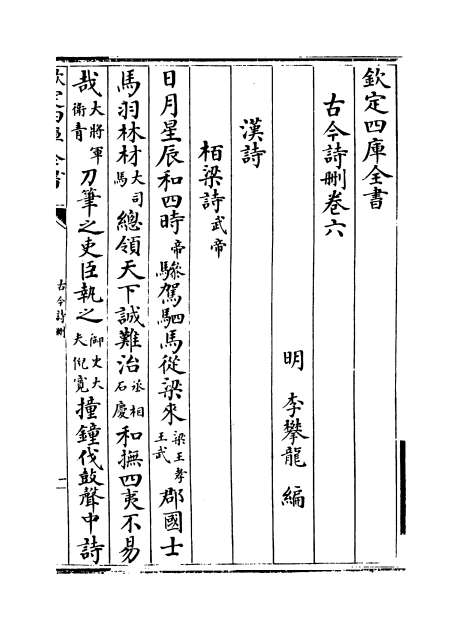 欽定四庫全書
古今詩刪卷六
明 李攀龍 編
漢詩
栢梁詩武帝
日月星辰和四時帝驂駕駟馬從梁來梁王孝王武郡國士
馬羽林材大司馬總領天下誠難治丞相石慶和撫四夷不易
哉大將軍衛青刀筆之吏臣執之御史大夫倪寛撞鐘伐鼓聲中詩
欽定四庫全書
古今詩刪